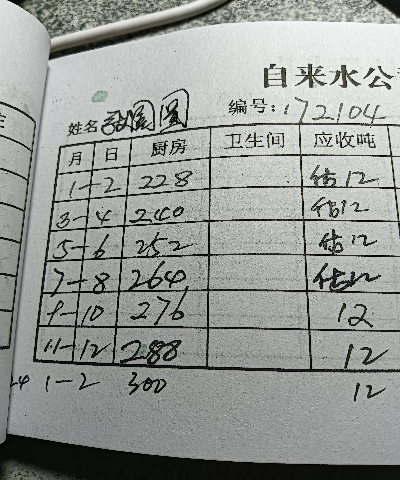 自来水公
姓名 圆圆 编号: 172104
月 日 厨房 卫生间 应收吨
1-2 228 估12
3-4 240 估12
5-6 252 估12
7-8 264 估12
9-10 276 12
11-12 288 12
1-2 300 12